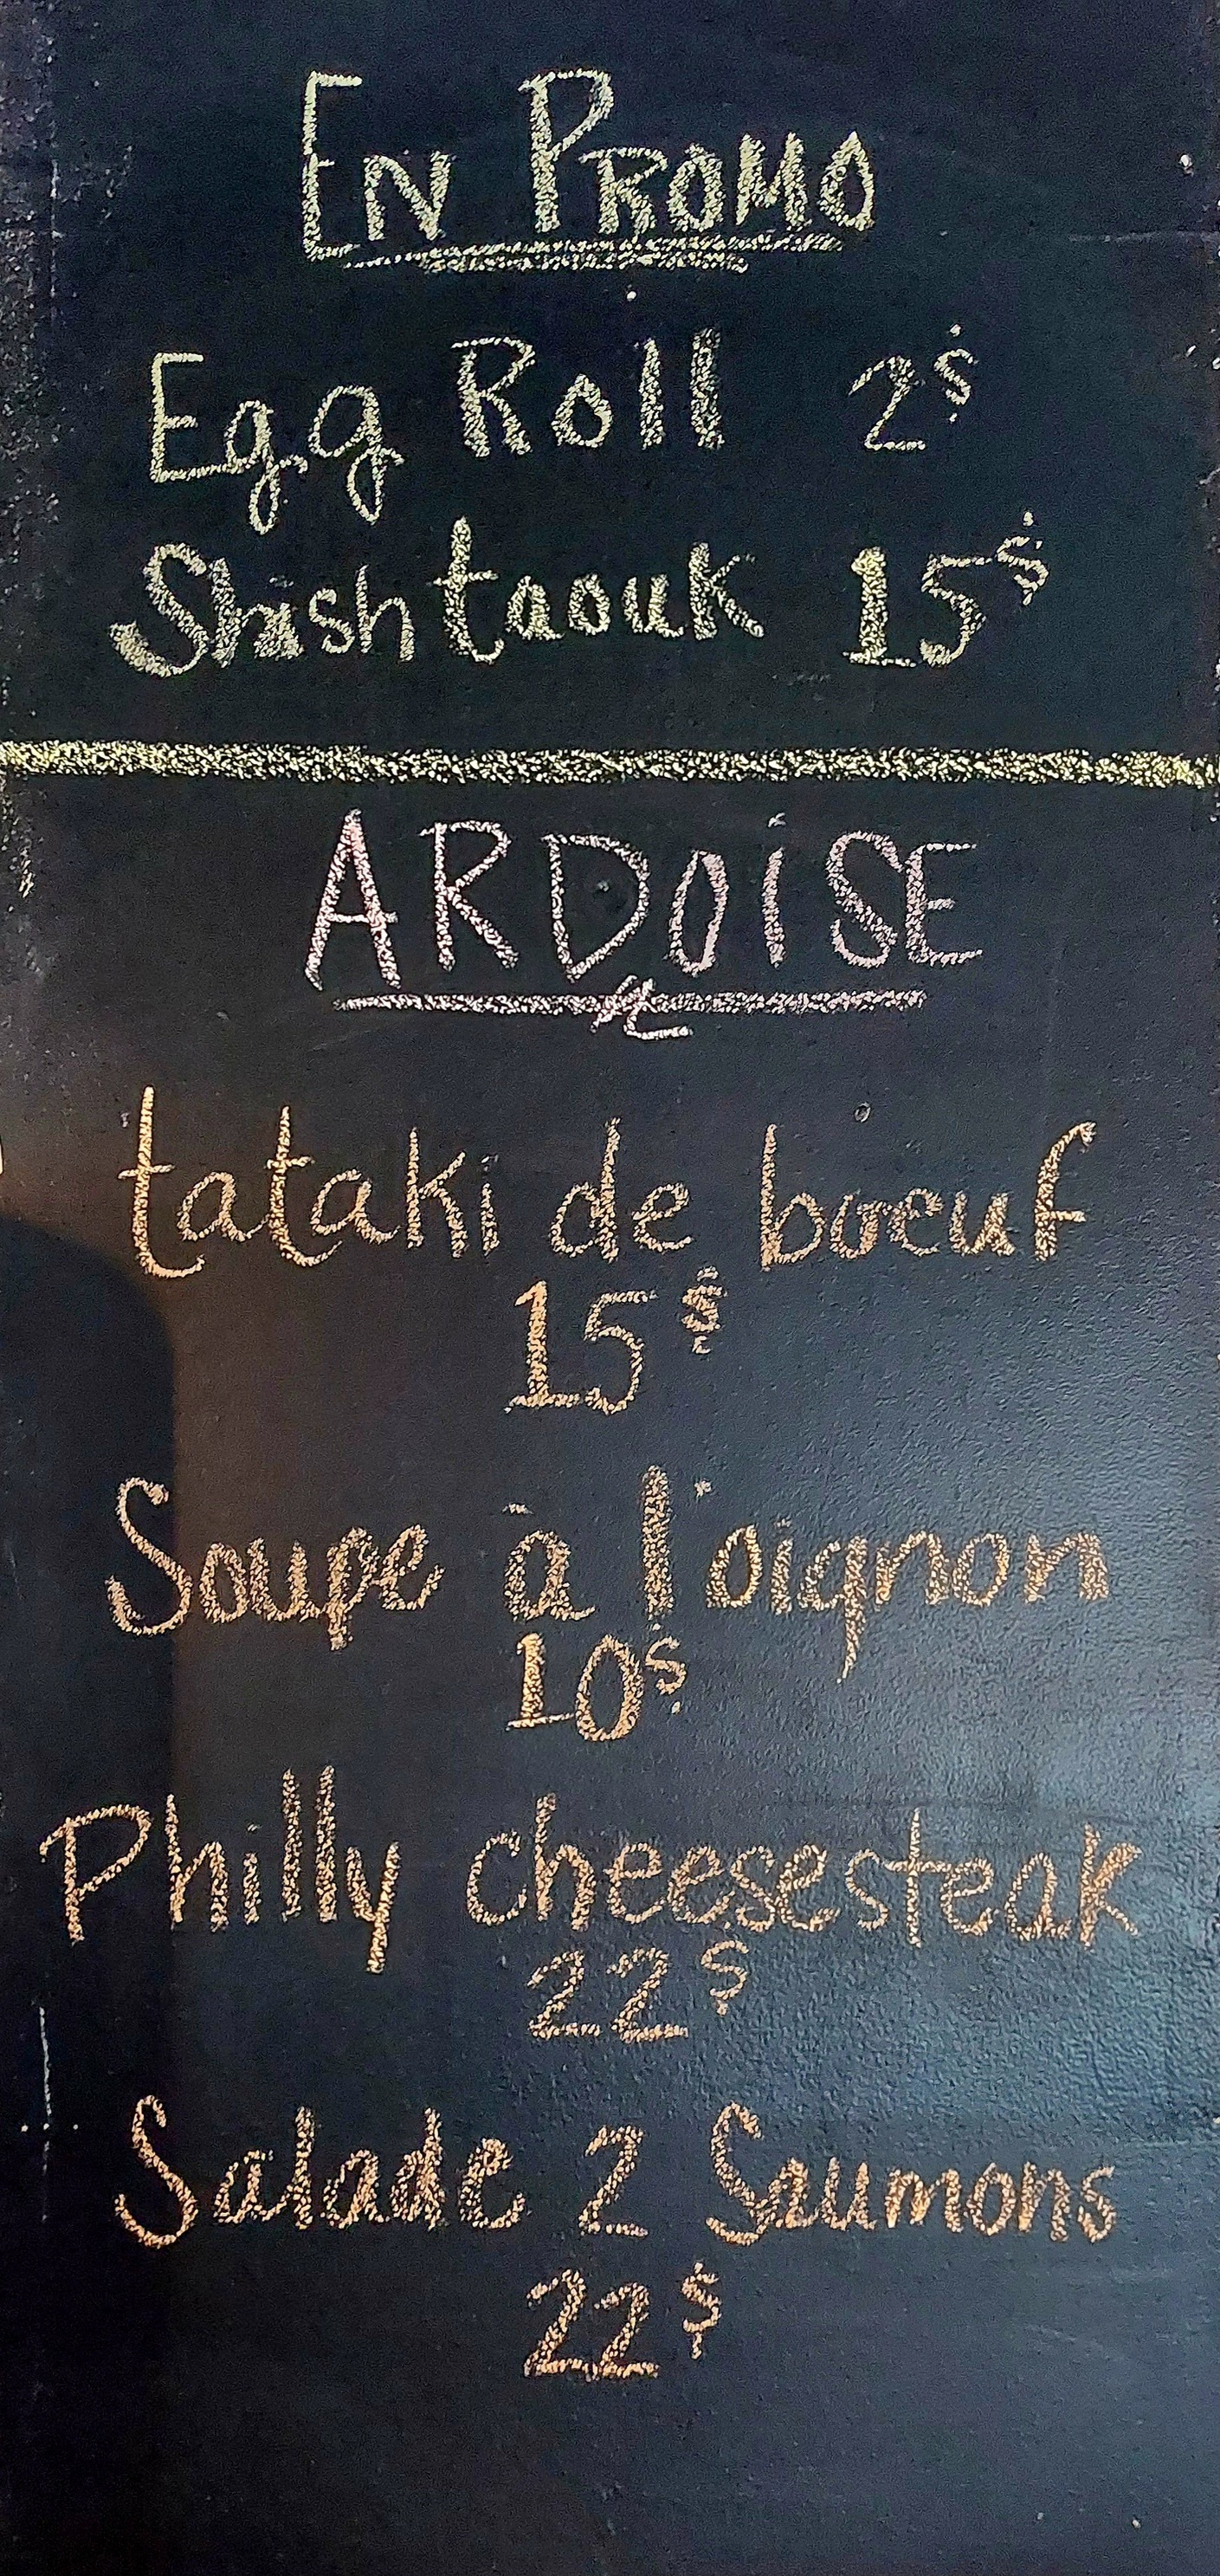 En Promo
Egg Roll 2$
Shish taouk 15$
ARDOiSE
tataki de bœuf
15$
Soupe à l'oignon
10$
Philly cheesesteak
22$
Salade 2 Saumons
22$